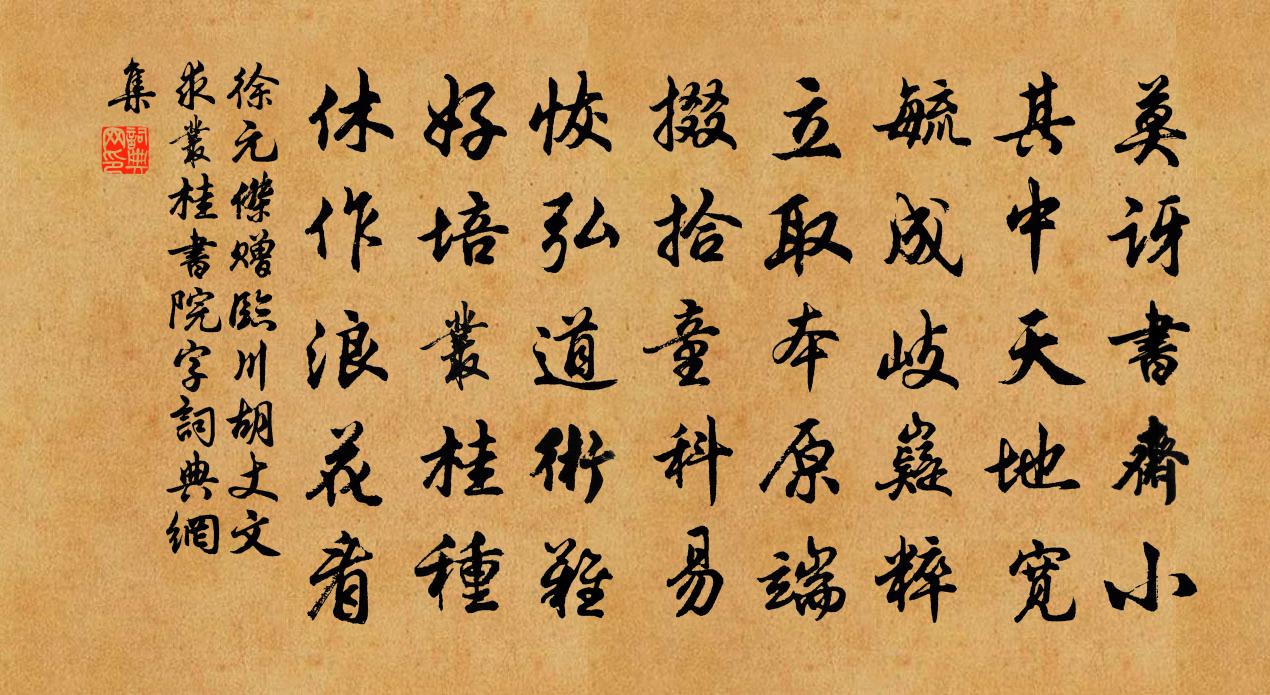 莫訝書齋小
其中天地寬
毓成岐嶷粹
立取本原端
掇拾童科易
恢弘道術難
好培叢桂種
休作浪花看
徐元傑贈臨川胡丈文
求叢桂書院字詞典網
集
詞典網印